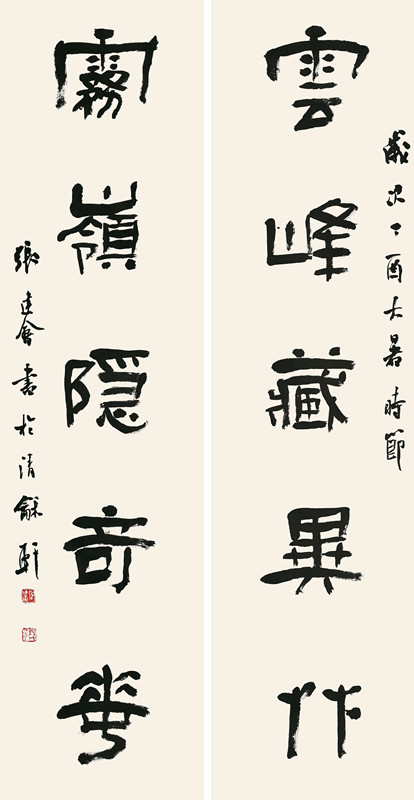 雲峰藏異竹
歲次丁酉大暑時節
霧嶺隐奇華
張建會書於清龢軒